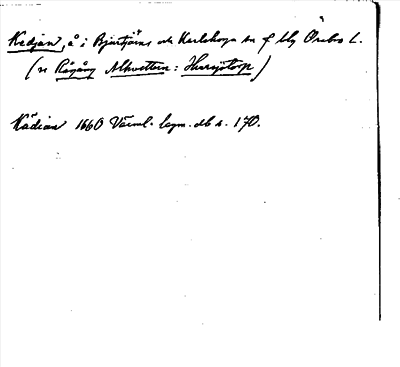 Kedjan, å i Bjurtjärns och Karlskoga sn f bg Örebro l.
(se Rågång Alkvettern : Hurrsjötorp)
Kädian 1660 Värml. lagm. db s. 170.